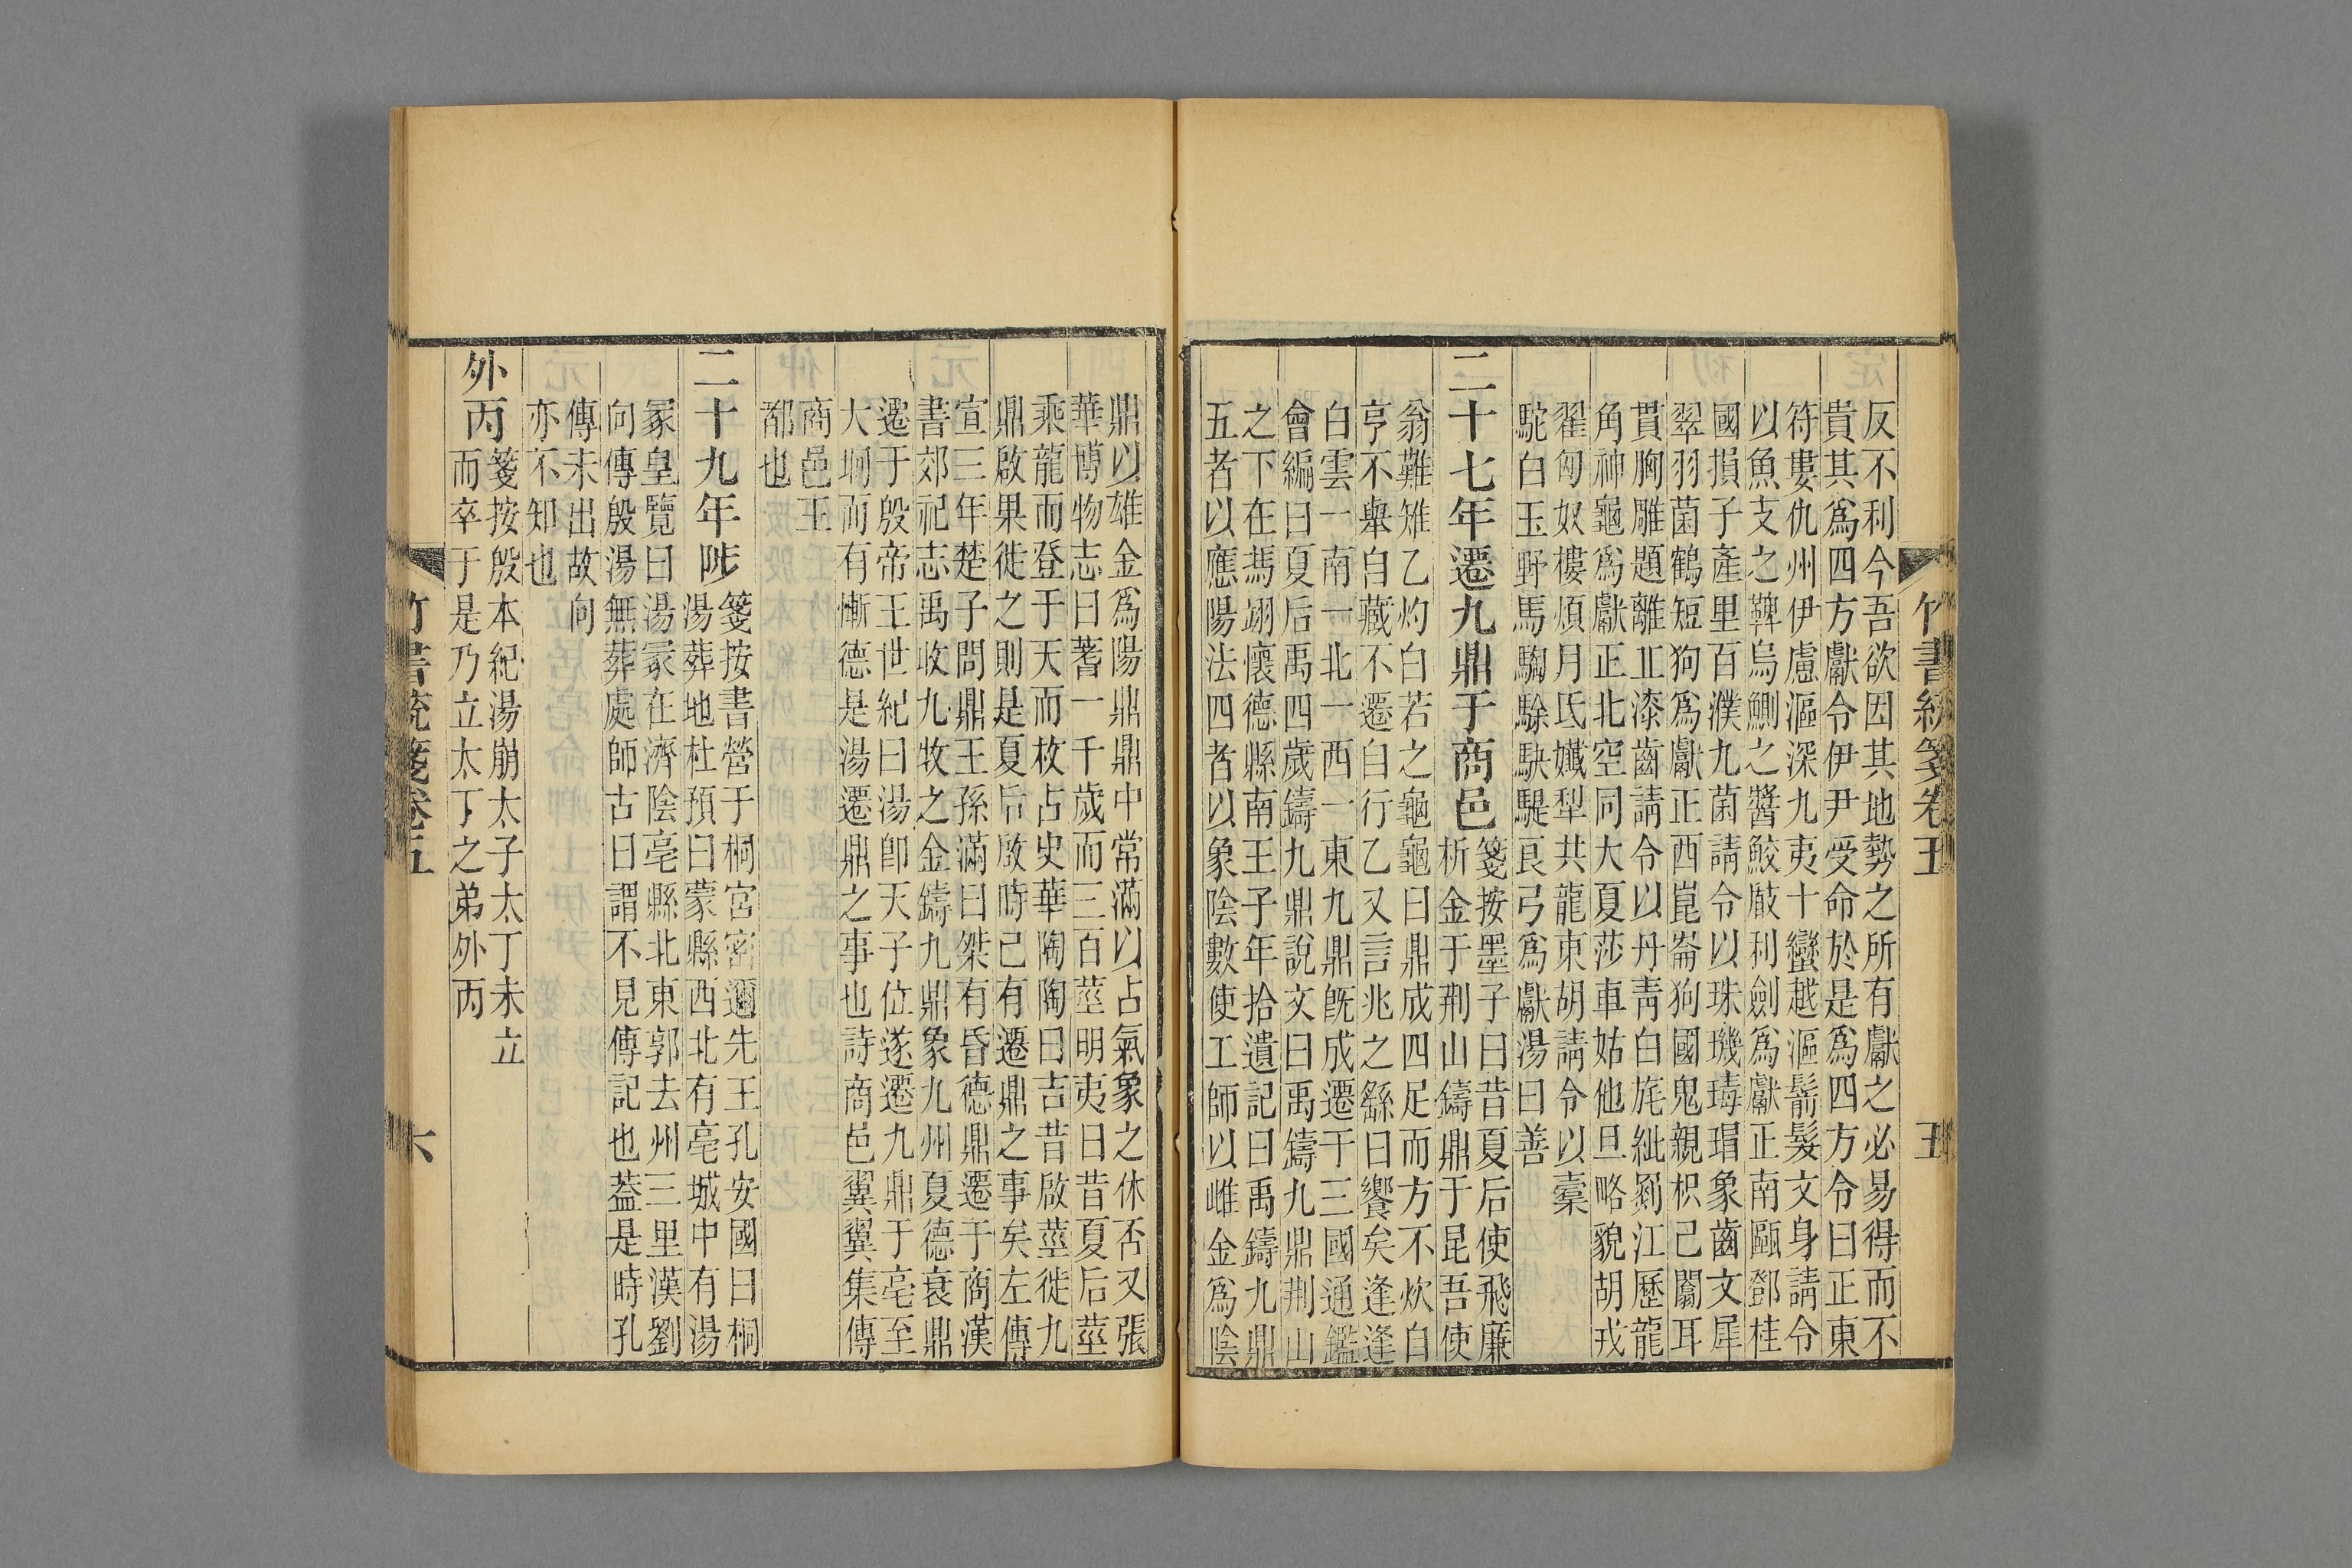 竹書統箋卷五
五
反不利今吾欲因其地勢之所有獻之必易得而不
貴其爲四方獻令伊尹受命於是爲四方令曰正東
符婁仇州伊慮漚深九夷十蠻越漚鬋髮文身請令
以魚支之鞞烏鰂之醬鮫瞂利劍爲獻正南甌鄧桂
國損子產里百濮九菌請令以珠璣瑇瑁象齒文犀
翠羽菌鶴短狗爲獻正西崑崙狗國鬼親枳己闟耳
貫胸雕題離丠漆齒請令以丹青白旄紕罽江歷龍
角神龜爲獻正北空同大夏莎車姑他旦略貌胡戎
翟匈奴樓煩月氏孅犁共龍東胡請令以橐
駝白玉野馬騊駼駃騠良弓爲獻湯曰善
二十七年遷九鼎于商邑
箋按墨子曰昔夏后使飛廉
析金于荆山鑄鼎于昆吾使
翁難雉乙灼白若之龜龜曰鼎成四足而方不炊自
亨不舉自藏不遷自行乙又言兆之繇曰饗矣逢逢
白雲一南一北一西一東九鼎旣成遷于三國通鑑
會編曰夏后禹四歲鑄九鼎說文曰禹鑄九鼎荆山
之下在馮翊懷德縣南王子年拾遺記曰禹鑄九鼎
五者以應陽法四者以象陰數使工師以雌金爲陰
鼎以雄金爲陽鼎鼎中常滿以占氣象之休否又張
華博物志曰蓍一千歲而三百莖明夷曰昔夏后莖
乘龍而登于天而枚占史華陶陶曰吉昔啟莖徙九
鼎啟果徙之則是夏后啟時已有遷鼎之事矣左傳
宣三年楚子問鼎王孫滿曰桀有昏德鼎遷于商漢
書郊祀志禹收九牧之金鑄九鼎象九州夏德衰鼎
遷于殷帝王世紀曰湯卽天子位遂遷九鼎于亳至
大坰而有慚德是湯遷鼎之事也詩商邑翼翼集傳
商邑王
都也
二十九年陟
箋按書營于桐宮密邇先王孔安國曰桐
湯葬地杜預曰蒙縣西北有亳城中有湯
冢皇覽曰湯冢在濟陰亳縣北東郭去州三里漢劉
向傳殷湯無葬處師古曰謂不見傳記也葢是時孔
傳未出故向
亦不知也
外丙
箋按殷本紀湯崩太子太丁未立
而卒于是乃立太丁之弟外丙
竹書統箋卷五
六